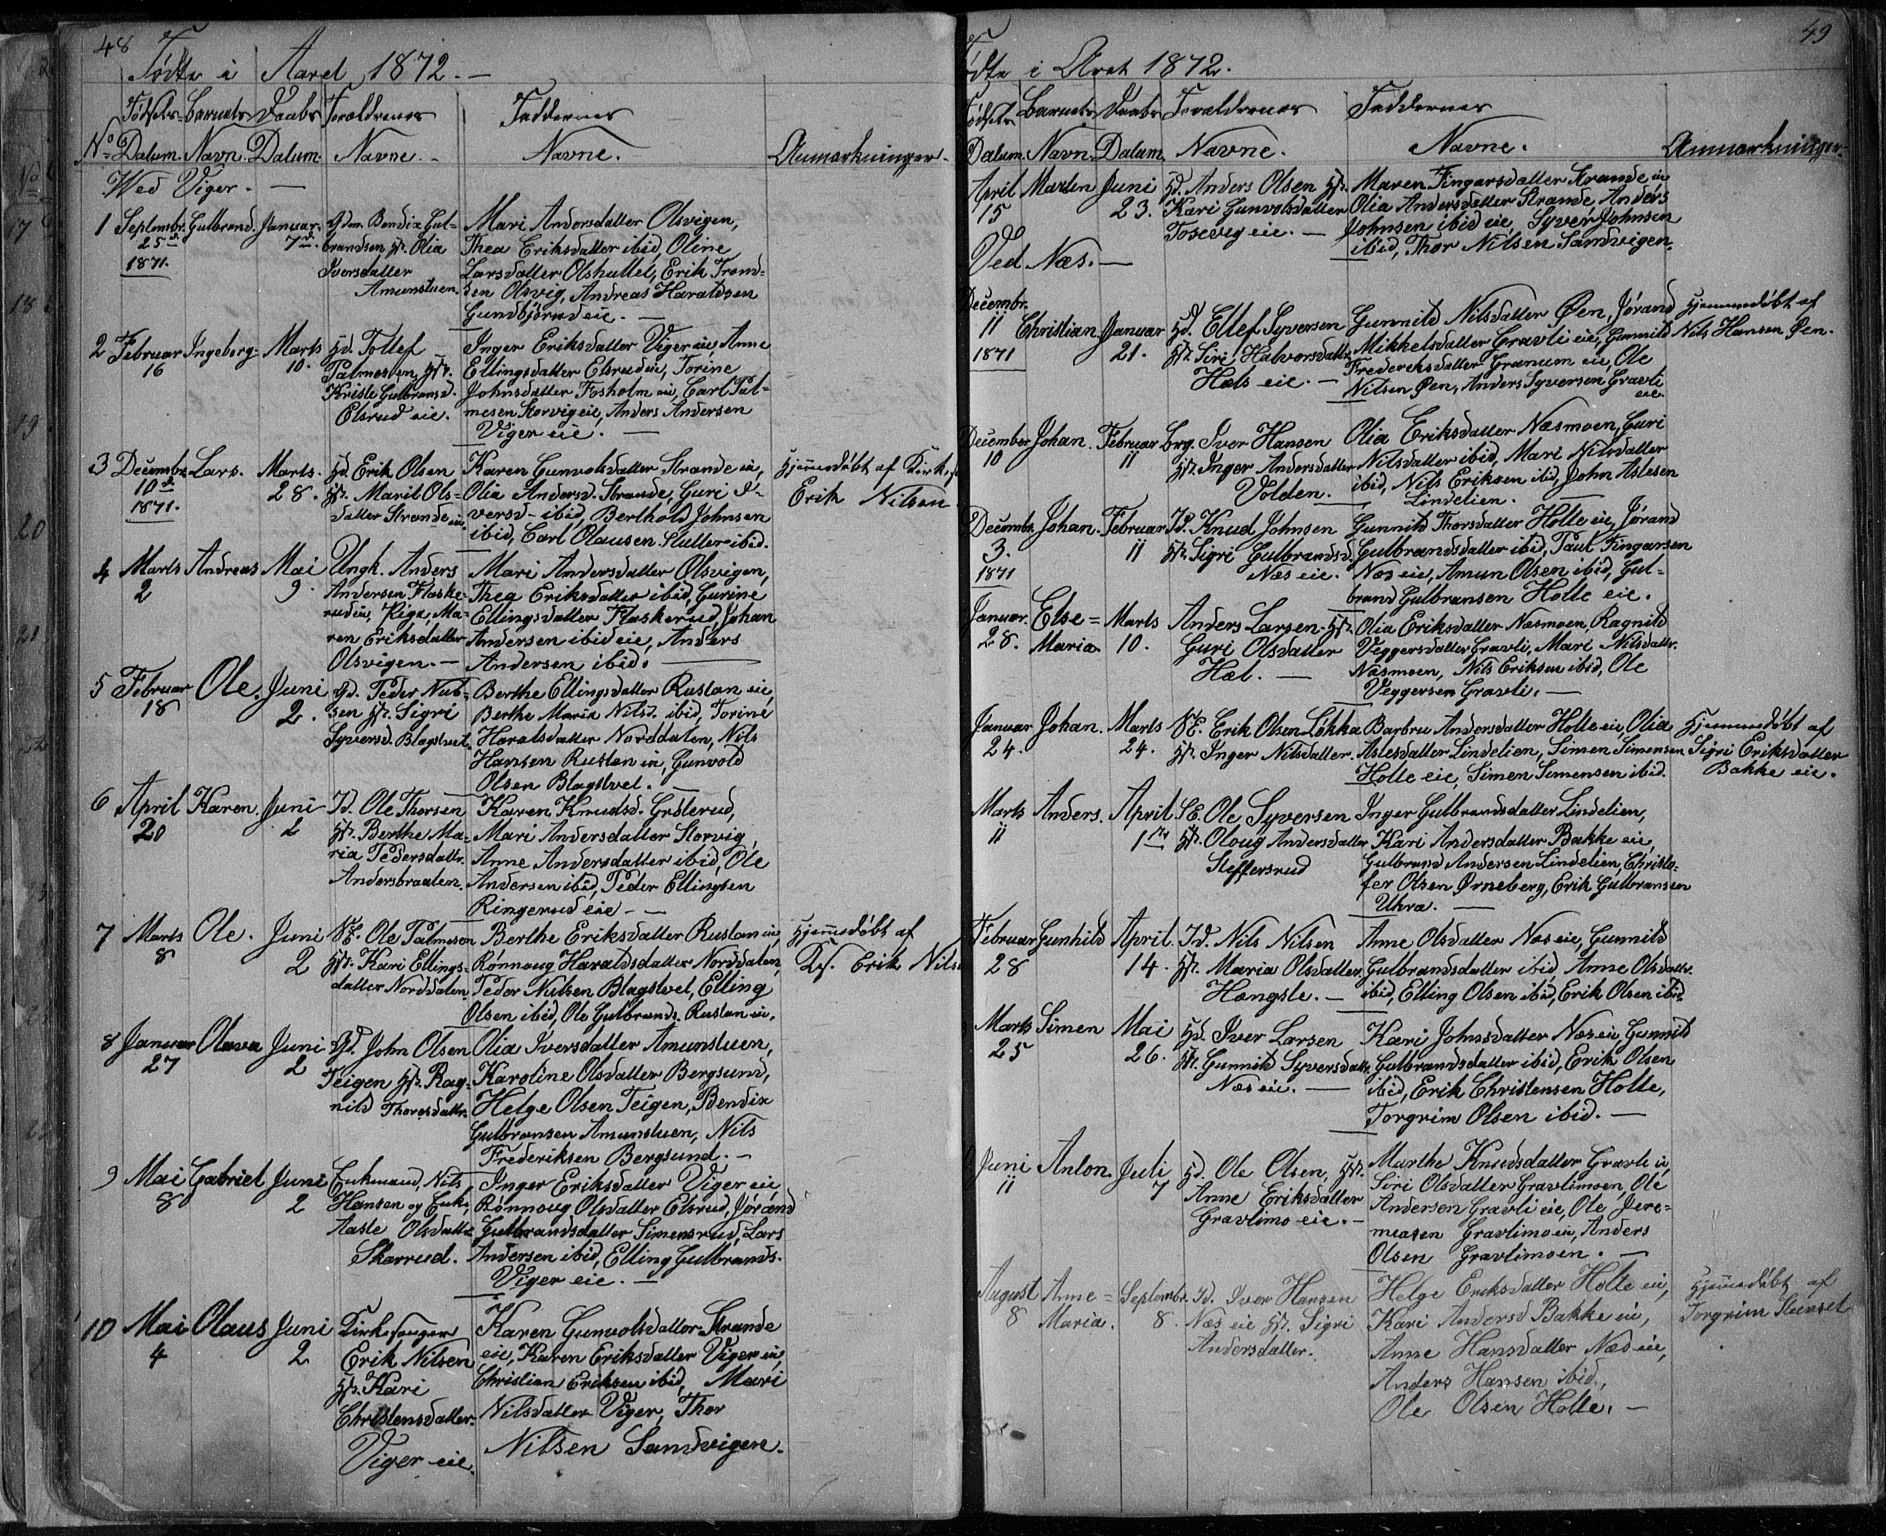 48
Fødte i Aaret 1872. —
Fødsels- Barnets Daabs Foraldrenes Faddernes
No Datum. Navn. Datum. Navne. Navne. Anmarkninger.
Wed Viger. —
1 Septembr. Gulbrand. Januar. Gdm. Bendix Gul- Mari Andersdatter Olsvigen,
25d 7de brandsen, Hst. Olia Thea Eriksdatter ibid, Oline
1871. Iversdatter Larsdatter Olshullet, Erik Trond-
Amunstuen. sen Olsvig, Andreas Haraldsen
Gundbjørud eie. —
2 Februar Ingeborg Marts Hd. Tollef Inger Eriksdatter Viger eie, Anne
16 10. Palmesen, Hst. Ellingsdatter Elsrud eie, Torine
Kristi Gulbransd. Johnsdatter Fosholm eie, Carl Pal-
Elsrud eie. mesen Storvig eie, Anders Andersen
Viger eie. —
3 Decembr. Lars. Marts. Hd. Erik Olsen Karen Gunvolsdatter Strande eie, Hjemmedøbt af Kirkes.
10d 28. Hst. Marit Ols- Olia Andersd. Strande, Guri I- Erik Nilsen
1871. datter Strande eie versd- ibid, Berthold Johnsen
ibid, Carl Olausen Slutter ibid.
4 Marts Andreas Mai Ungk. Anders Mari Andersdatter Olsvigen,
2 9. Andersen Flaske- Thea Eriksdatter ibid, Gurine
rud eie, Pige, Ma- Ellingsdatter Flaskerud, Johan
ren Eriksdatter Andersen ibid eie, Anders
Olsvigen. — Andersen ibid. —
5 Februar Ole. Juni Gd. Peder Nub- Berthe Ellingsdatter Rustan eie,
18 2. sen Hst. Sigri Berthe Maria Nilsd. ibid, Torine
Syversd. Blagstvet. Haralsdatter Norddalen, Nils
Hansen Rustan eie, Gunvold
Olsen Blagstvet. —
6 April Karen. Juni Id. Ole Thorsen Karen Knudsd. Grøterud,
20 2 Hst. Berthe Ma- Mari Andersdatter Storvig,
ria Pedersdattr. Anne Andersdatter ibid, Ole
Andersbraaten. Andersen ibid, Peder Ellingsen
Ringerud eie. —
7 Marts Ole. Juni SE. Ole Palmesen Berthe Eriksdatter Rustan eie, Hjemmedøbt af
8 2 Hst. Kari Ellings- Rønnoug Haraldsdatter Norddalen, Ks. Erik Nilsen
datter Norddalen. Peder Nubsen Blagstvet, Elling
Olsen ibid, Ole Gulbrands. Rustan eie.
8 Januar Olava Juni Gd. John Olsen Olia Iversdatter Amunstuen,
27 2 Teigen Hst. Rag- Karoline Olsdatter Bergsund,
nild Thoresdattr. Helge Olsen Teigen, Bendix
Gulbransen Amunstuen, Nils
Frederiksen Bergsund. —
9 Mai Gabriel Juni Enkemand, Nils Inger Eriksdatter Viger eie,
8 2 Hansen og Enke, Rønnoug Olsdatter Elsrud, Jørand
Aasle Olsdatter Gulbrandsdatter Simensrud, Lars
Skarrud. Andersen ibid, Elling Gulbrands-
Viger eie. —
10 Mai Olaus Juni Kirkesanger Karen Gunvolsdatter Strande
4 2 Erik Nilsen eie, Karen Eriksdatter Viger eie,
Hst. Kari Christian Eriksen ibid, Mari
Christensdatter Nilsdatter Viger, Thor
Viger eie. Nilsen Sandvigen.
49
Fødte i Aret 1872.
Fødsels Barnets Daabs Foraldrenes Faddernes
Datum. Navn. Datum. Navne. Navne. Anmarkninger.
April Martin Juni Hd. Anders Olsen Hst. Maren Fingarsdatter Strande eie
15 23. Kari Gunvolsdatter Olia Andersdatter Strande, Anders
Tosevig eie. — Johnsen ibid eie, Syver Johnsen
ibid, Thor Nilsen Sandvigen.
Ved Næs. —
Decembr.
11 Christian Januar Hd. Ellef Syversen Gunnild Nilsdatter Øen, Jørand Hjemmedøbt af
1871 21. Hst. Siri Halvorsdattr. Mikkelsdatter Gravli eie, Gunnild Nils Hansen Øen.
Hæls eie. — Fredereksdatter Granum eie, Ole
Nilsen Øen, Anders Syversen Gravli
eie.
December Johan. Februar Brg. Iver Hansen Olia Eriksdatter Næsmoen, Guri
10 11 Hst. Inger Andersdatter Nilsdatter ibid, Mari Nilsdatter
Volden. ibid, Nils Eriksen ibid, John Aslesen
Lindelien. —
Decembr. Johan. Februar Id. Knud Johnsen Gunnild Thorsdatter Holte eie, Jørand
3. 11 Hst. Sigri Gulbrandsd. Gulbrandsdatter ibid, Paul Fingarsen
1871 Næs eie. Næs eie, Amun Olsen ibid, Gul-
brand Gulbransen Holte eie.
Januar. Else = Marts Anders Larsen. Hst. Olia Eriksdatter Næsmoen, Ragnild
28. Maria. 10. Guri Olsdatter Veggersdatter Gravli, Mari Nilsdattr.
Hæl. — Næsmoen, Nils Eriksen ibid, Ole
Veggersen Gravli. —
Januar Johan. Marts SE. Erik Olsen Løkka Barbru Andersdatter Holte eie, Olia Hjemmedøbt af
24. 24. Hst. Inger Nilsdatter. Aslesdatter Lindelien, Simen Simensen Sigri Eriksdatter
Holte eie, Simen Simensen ibid. Bakke eie.
Marts Anders. April SE. Ole Syversen Inger Gulbrandsdatter Lindelien,
11 1ste Hst. Oloug Andersdatter Kari Andersdatter Bakke eie,
Steffersrud Gulbrand Andersen Lindelien, Christo-
fer Olsen Ørneberg, Erik Gulbransen
Uhra. —
Februar Gunhild April. Id. Nils Nilsen Anne Olsdatter Næs eie, Gunnild
28 14. Hst. Maria Olsdatter. Gulbrandsdatter ibid, Anne Olsdattr.
Hængsle. — ibid, Elling Olsen ibid, Erik Olsen ibid.
Marts Simen Mai Hd. Iver Larsen Kari Johnsdatter Næs eie, Gunnild
25 26. Hst. Gunnild Syversdattr. Gulbrandsdatter ibid, Erik Olsen
Næs eie. — ibid, Erik Christensen Holte,
Torgrim Olsen ibid. —
Juni Anton. Juli Hd. Ole Olsen, Hst. Marthe Knudsdatter Gravli eie,
11 7 Anne Eriksdatter Siri Olsdatter Gravlimoen, Ole
Gravlimo eie. — Andersen Gravli eie, Ole Jere-
miasen Gravlimo eie, Anders
Olsen Gravlimoen. —
August Anne = Septembr. Id. Iver Hansen Helge Eriksdatter Holte eie, Hjemmedøbt af
8 Maria. 8. Næs eie Hst. Sigri Kari Andersd Bakke eie, Torgrim Stenset
Andersdatter. Anne Hansdatter Næs eie,
Anders Hansen ibid,
Ole Olsen Holte. —